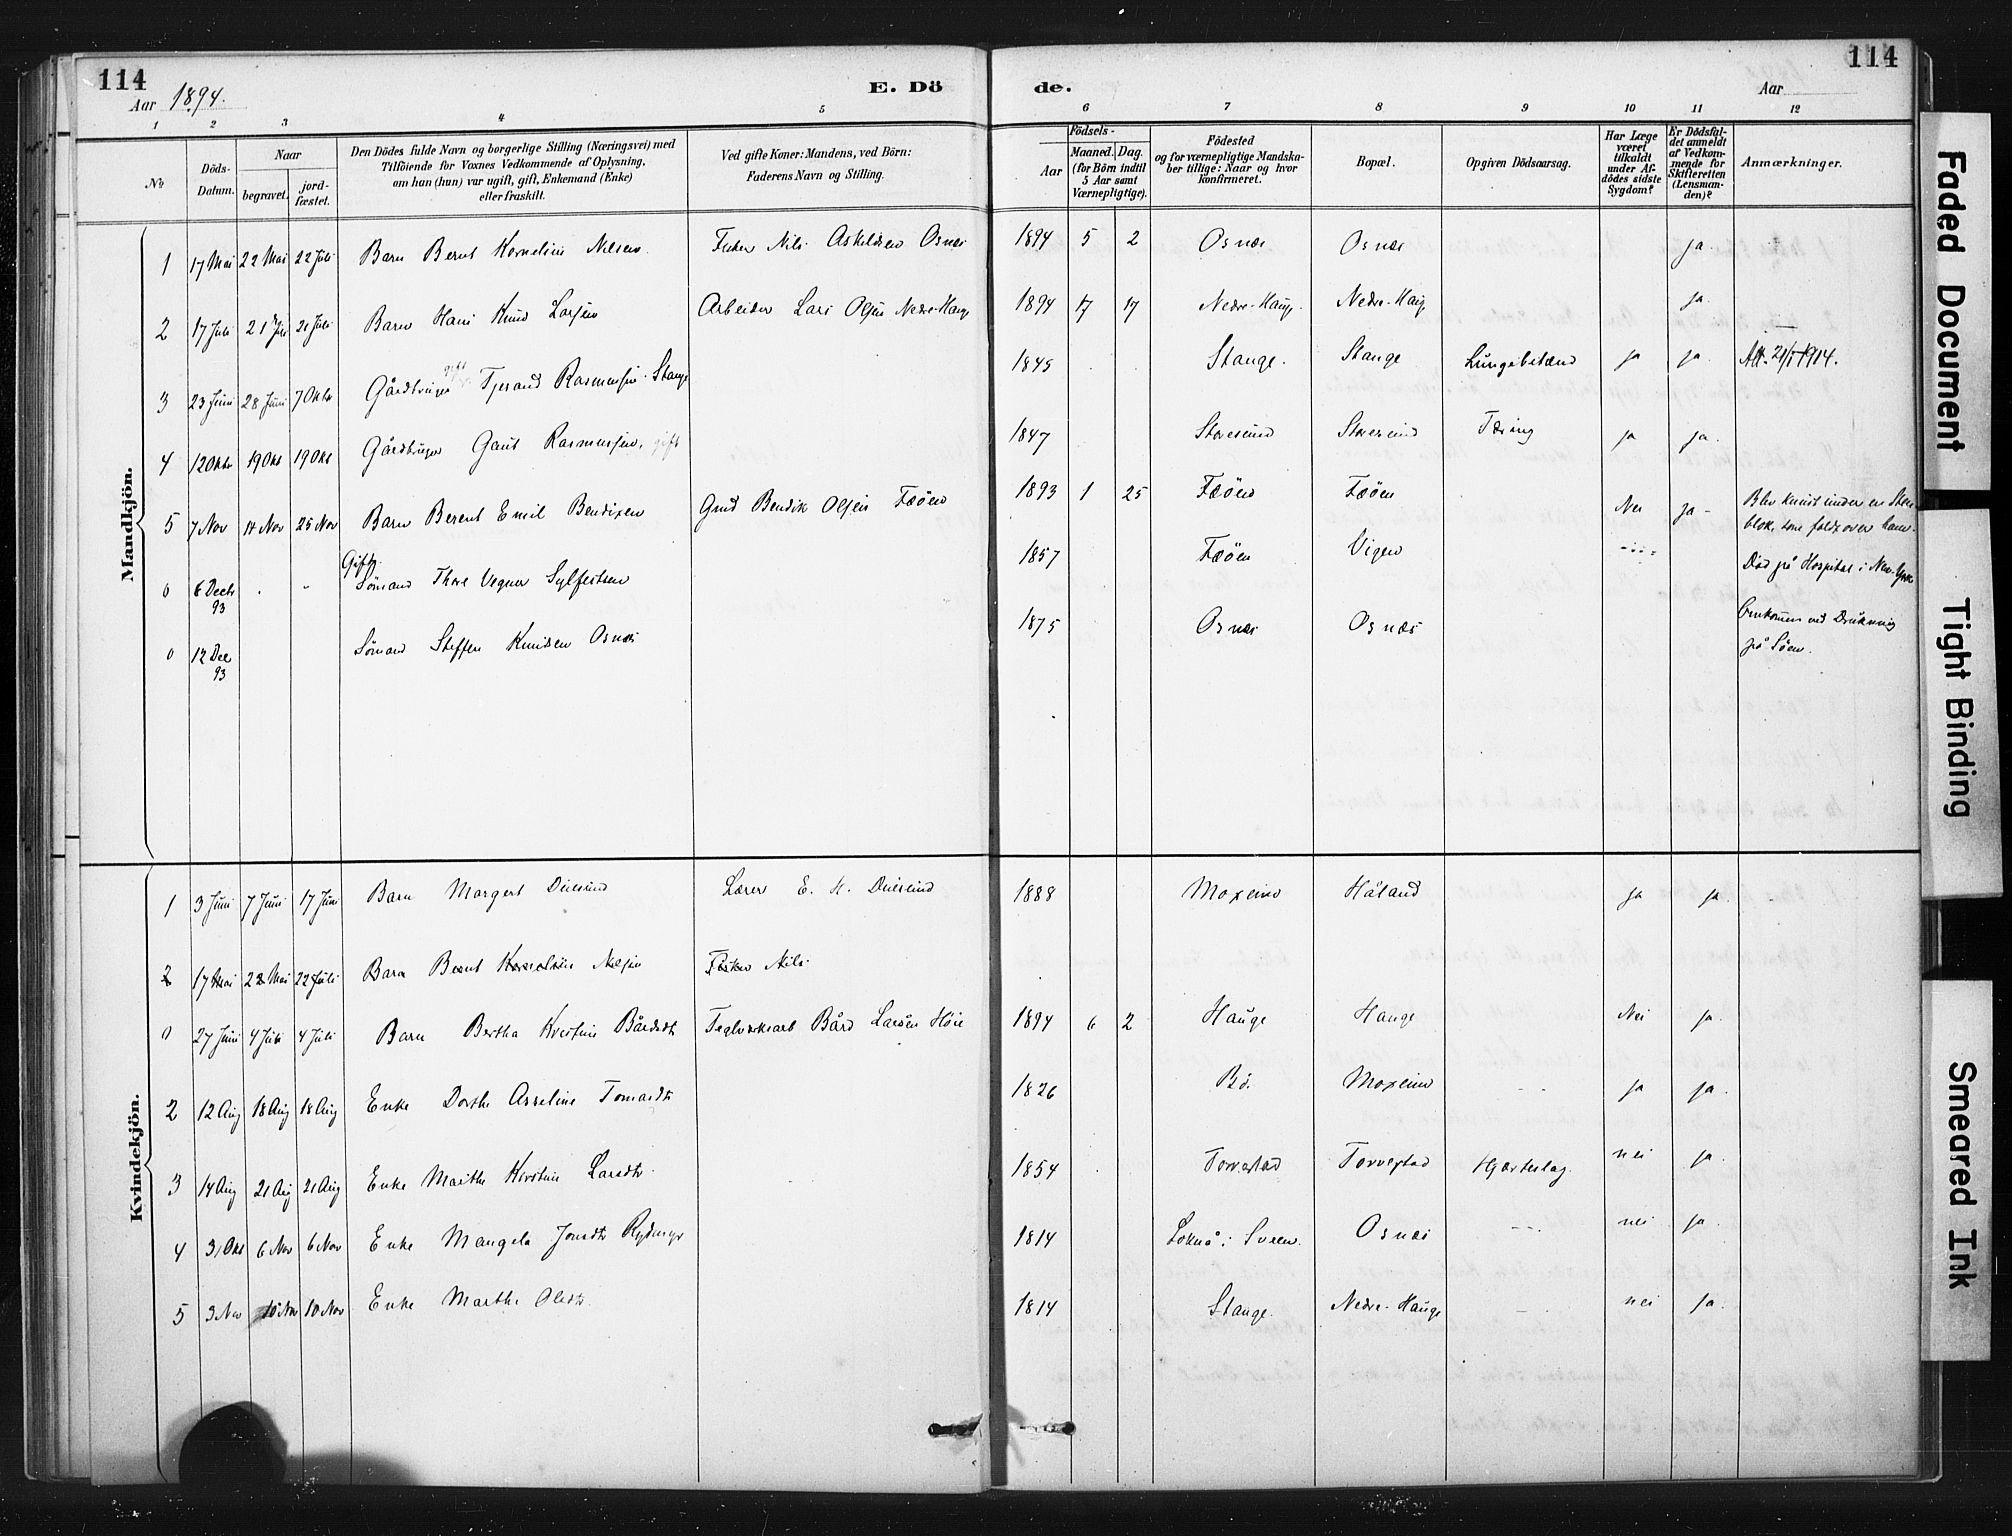 114
Aar 1894.
E. Dö
de.
114
Aar
1 2 3 4 5 6 7 8 9 10 11 12
No
Döds-Datum.
Naar
begravet.
jord-fæstet.
Den Dödes fulde Navn og borgerlige Stilling (Næringsvei) med
Tilföiende for Voxnes Vedkommende af Oplysning,
om han (hun) var ugift, gift, Enkemand (Enke)
eller fraskilt.
Ved gifte Koner: Mandens, ved Börn:
Faderens Navn og Stilling.
Födsels-
Aar
Maaned. Dag.
(for Börn indtil
5 Aar samt
Værnepligtige).
Födested
og for værnepligtige Mandska-
ber tillige: Naar og hvor
konfirmeret.
Bopæl.
Opgiven Dödsaarsag.
Har Læge
været
tilkaldt
under Af-
dödes sidste
Sygdom?
Er Dödsfal-
det anmeldt
af Vedkom-
mende for
Skifteretten
(Lensman-
den)?
Anmærkninger.
Mandkjön.
1 17 Mai 22 Mai 22 Juli Barn Bernt Kornelius Nilsen Fisker Nils Askildsen Osnæs 1894 5 2 Osnæs Osnæs ja
2 17 Juli 21 Juli 21 Juli Barn Hans Knud Larsen Arbeider Lars Olsen Nedre-Hauge 1894 17 17 Nedre-Haug. Nedre-Haug ja
3 23 Juni 28 Juni 7 Oktb Gårdbruger gift Tjerand Rasmussen Stange 1845 Stange. Stange Lungebetænd ja ja. Att. 1914.
4 12 Oktbr 19 Okt 19 Okt Gårdbruger Gaut Rasmussen, gift 1847 Storesund Storesund Tæring ja ja.
5 7 Nov 14 Nov 25 Nov Barn Berent Emil Bendixen Grd Bendik Olsen Fæöen 1893 1 25 Fæöen Fæöen Nei ja - Blev knust under en Sten
blok, som faldt over ham.
0 6 Decbr 93 Gift Sömand Thore Vegner Sylfestsen 1857 Fæöen Vigen Död på Hospital i New-York
0 12 Dec 93 Sömand Steffen Knudsen Osnæs 1875 Osnæs Osnæs Omkommen ved Drukning
på Söen.
Kvindekjön.
1 3 Juni 7 Juni 17 Juni Barn Margert Duesund Lærer E. H. Duesund 1888 Moxeim Håland ja ja.
2 17 Mai 22 Mai 22 Juli Barn Bernt Kornelius Nilsen Fisker Nils
0 27 Juni 4 Juli 4 Juli Barn Bertha Kristine Bårdsdtr Teglverksarb Bård Larsen Höie 1894 6 2 Hauge Hauge Nei ja.
2 12 Aug 18 Aug 18 Aug Enke Dorthe Asseline Tomasdtr 1826 Bö. Moxeim ja ja.
3 14 Aug 21 Aug 21 Aug Enke Marthe Kirstine Larsdtr. 1854 Torvestad Torvestad Hjerteslag nei ja.
4 31 Okt 6 Nov 6 Nov Enke Mangela Jonsdtr 1814 i Sveen. Osnæs nei ja.
5 3 Nov 10 Nov 10 Nov Enke Marthe Olsdtr 1814 Stange. Nedre-Hauge nei ja.
Faded Document
Tight Binding
Smeared Ink